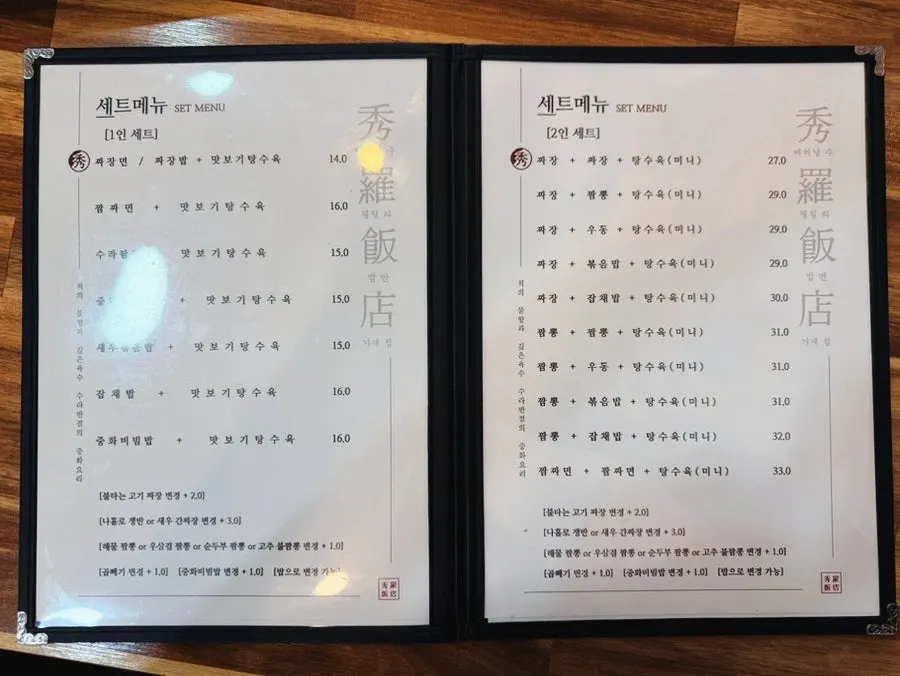 세트메뉴 SET MENU
[1인 세트]
秀 짜장면 / 짜장밥 + 맛보기탕수육 14.0
짬짜면 + 맛보기탕수육 16.0
수라짬 맛보기탕수육 15.0
중화 + 맛보기탕수육 15.0
새우볶음밥 + 맛보기탕수육 15.0
잡채밥 + 맛보기탕수육 16.0
중화비빔밥 + 맛보기탕수육 16.0
[불타는 고기 짜장 변경 + 2.0]
[나홀로 쟁반 or 새우 간짜장 변경 + 3.0]
[해물 짬뽕 or 우삼겹 짬뽕 or 순두부 짬뽕 or 고추 불짬뽕 변경 + 1.0]
[곱빼기 변경 + 1.0] [중화비빔밥 변경 + 1.0] [밥으로 변경 가능]
秀
羅
펼칠 라
飯
밥 반
店
가게 점
물랑라 깊은육수 수라반점의 중화요리
秀羅
飯店
세트메뉴 SET MENU
[2인 세트]
秀 짜장 + 짜장 + 탕수육(미니) 27.0
짜장 + 짬뽕 + 탕수육(미니) 29.0
짜장 + 우동 + 탕수육(미니) 29.0
짜장 + 볶음밥 + 탕수육(미니) 29.0
짜장 + 잡채밥 + 탕수육(미니) 30.0
짬뽕 + 짬뽕 + 탕수육(미니) 31.0
짬뽕 + 우동 + 탕수육(미니) 31.0
짬뽕 + 볶음밥 + 탕수육(미니) 31.0
짬뽕 + 잡채밥 + 탕수육(미니) 32.0
짬짜면 + 짬짜면 + 탕수육(미니) 33.0
[불타는 고기 짜장 변경 + 2.0]
[나홀로 쟁반 or 새우 간짜장 변경 + 3.0]
[해물 짬뽕 or 우삼겹 짬뽕 or 순두부 짬뽕 or 고추 불짬뽕 변경 + 1.0]
[곱빼기 변경 + 1.0] [중화비빔밥 변경 + 1.0] [밥으로 변경 가능]
秀
빼어날 수
羅
펼칠 라
飯
밥 반
店
가게 점
깊은육수 수라반점의 중화요리
秀羅
飯店